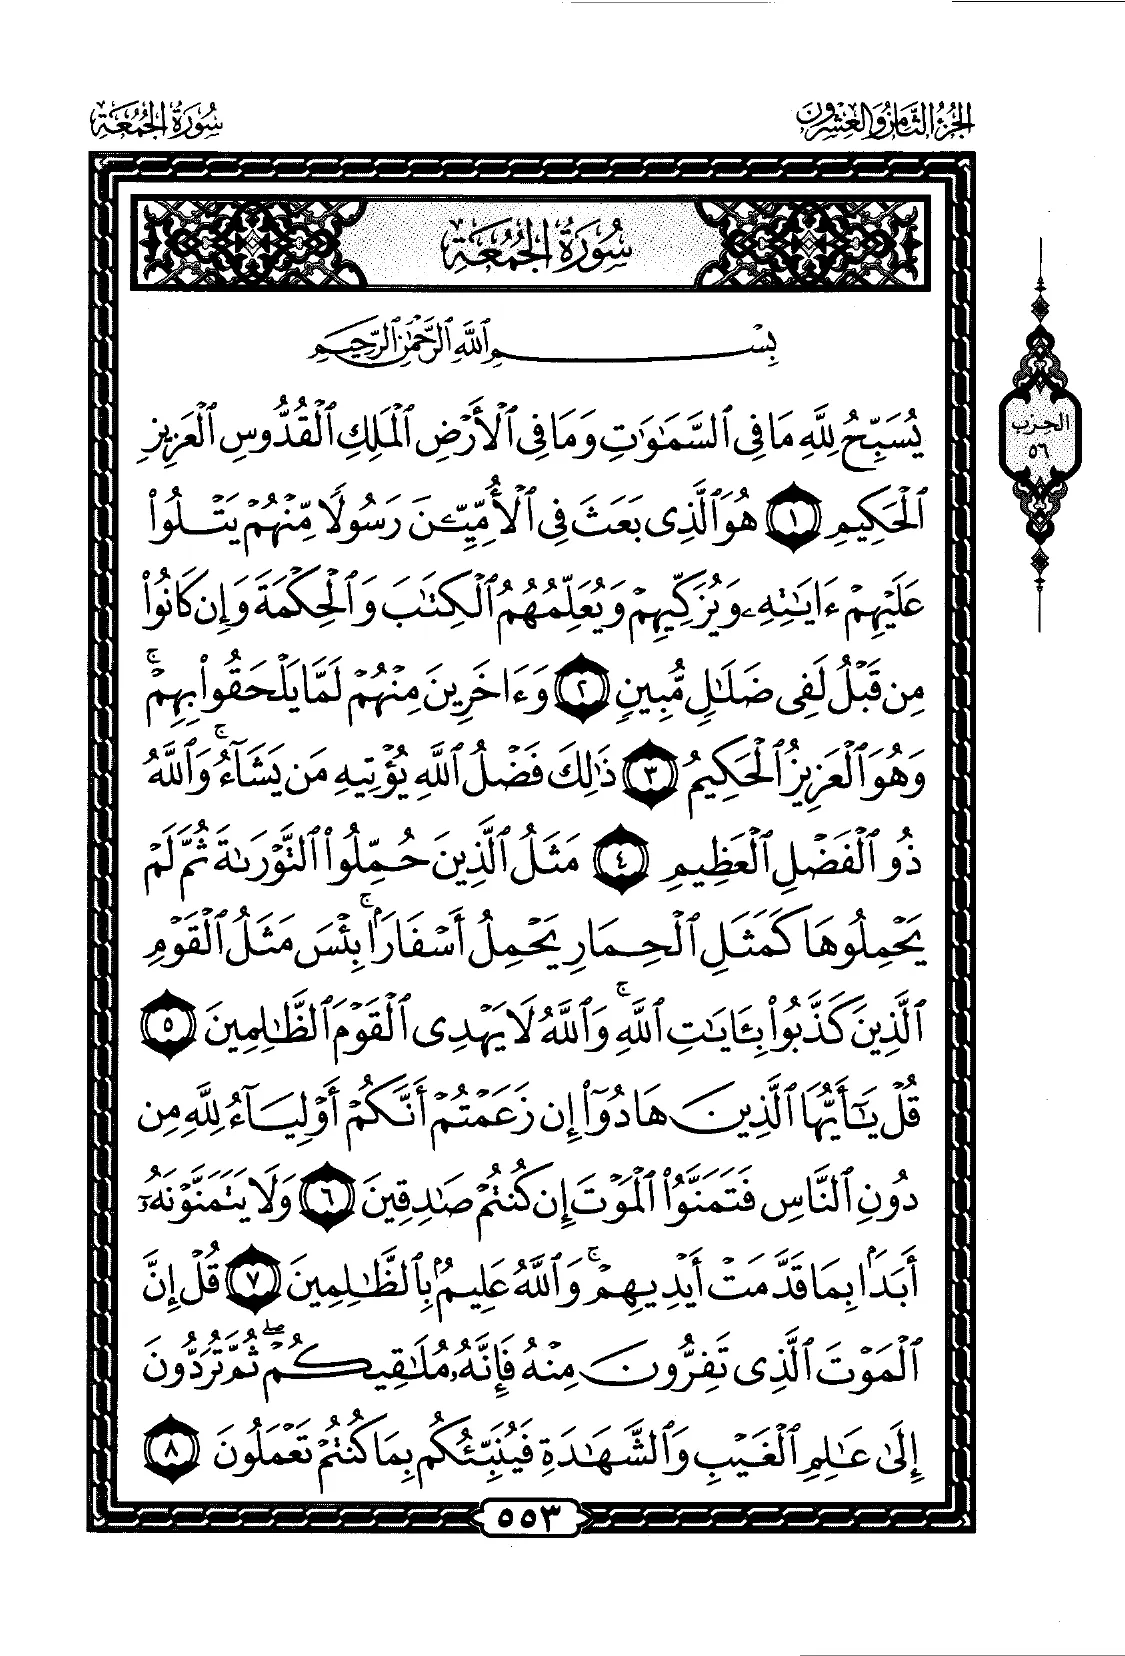 الجزء الثامن والعشرون
سورة الجمعة
سُورَةُ الجُمُعَةِ
بِسْمِ ٱللَّهِ ٱلرَّحْمَٰنِ ٱلرَّحِيمِ
الحزب
٥٦
يُسَبِّحُ لِلَّهِ مَا فِى ٱلسَّمَٰوَٰتِ وَمَا فِى ٱلْأَرْضِ ٱلْمَلِكِ ٱلْقُدُّوسِ ٱلْعَزِيزِ
ٱلْحَكِيمِ ١ هُوَ ٱلَّذِى بَعَثَ فِى ٱلْأُمِّيِّـۧنَ رَسُولًا مِّنْهُمْ يَتْلُوا۟
عَلَيْهِمْ ءَايَٰتِهِۦ وَيُزَكِّيهِمْ وَيُعَلِّمُهُمُ ٱلْكِتَٰبَ وَٱلْحِكْمَةَ وَإِن كَانُوا۟
مِن قَبْلُ لَفِى ضَلَٰلٍ مُّبِينٍ ٢ وَءَاخَرِينَ مِنْهُمْ لَمَّا يَلْحَقُوا۟ بِهِمْ ۚ
وَهُوَ ٱلْعَزِيزُ ٱلْحَكِيمُ ٣ ذَٰلِكَ فَضْلُ ٱللَّهِ يُؤْتِيهِ مَن يَشَآءُ ۚ وَٱللَّهُ
ذُو ٱلْفَضْلِ ٱلْعَظِيمِ ٤ مَثَلُ ٱلَّذِينَ حُمِّلُوا۟ ٱلتَّوْرَىٰةَ ثُمَّ لَمْ
يَحْمِلُوهَا كَمَثَلِ ٱلْحِمَارِ يَحْمِلُ أَسْفَارًۢا ۚ بِئْسَ مَثَلُ ٱلْقَوْمِ
ٱلَّذِينَ كَذَّبُوا۟ بِـَٔايَٰتِ ٱللَّهِ ۚ وَٱللَّهُ لَا يَهْدِى ٱلْقَوْمَ ٱلظَّٰلِمِينَ ٥
قُلْ يَٰٓأَيُّهَا ٱلَّذِينَ هَادُوٓا۟ إِن زَعَمْتُمْ أَنَّكُمْ أَوْلِيَآءُ لِلَّهِ مِن
دُونِ ٱلنَّاسِ فَتَمَنَّوُا۟ ٱلْمَوْتَ إِن كُنتُمْ صَٰدِقِينَ ٦ وَلَا يَتَمَنَّوْنَهُۥٓ
أَبَدًۢا بِمَا قَدَّمَتْ أَيْدِيهِمْ ۚ وَٱللَّهُ عَلِيمٌۢ بِٱلظَّٰلِمِينَ ٧ قُلْ إِنَّ
ٱلْمَوْتَ ٱلَّذِى تَفِرُّونَ مِنْهُ فَإِنَّهُۥ مُلَٰقِيكُمْ ۖ ثُمَّ تُرَدُّونَ
إِلَىٰ عَٰلِمِ ٱلْغَيْبِ وَٱلشَّهَٰدَةِ فَيُنَبِّئُكُم بِمَا كُنتُمْ تَعْمَلُونَ ٨
٥٥٣